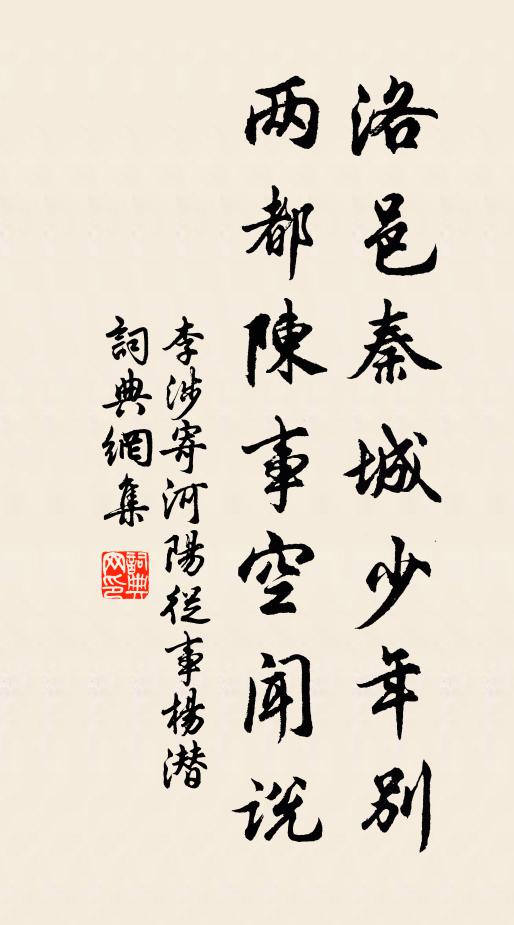 洛邑秦城少年別
两都陳事空聞説
李涉寄河陽從事楊潛
詞典網集
詞典网印